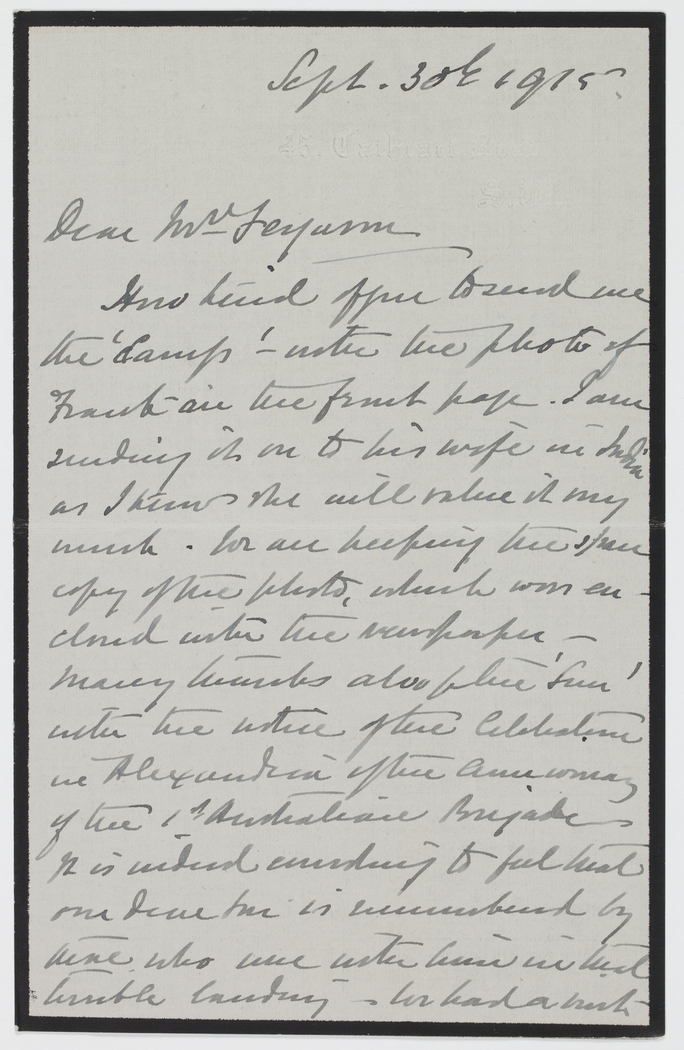 Sept. 30th 1915.
Dear Mrs Ferguson
How kind of you to send me
the 'Camp' - with the photo of
Frank on the front page. I am
sending it on to his wife in India
as I know she will value it very
much. We are keeping the spare
copy of the photo, which was en-
closed with the newspaper -
Many thanks also for the 'Sun'
with the notice of the Celebration
in Alexandria of the Anniversary
of the 1st Australian Brigade
It is indeed consoling to feel that
our dear son is remembered by
those who were with him in that
terrible landing - We had a visit